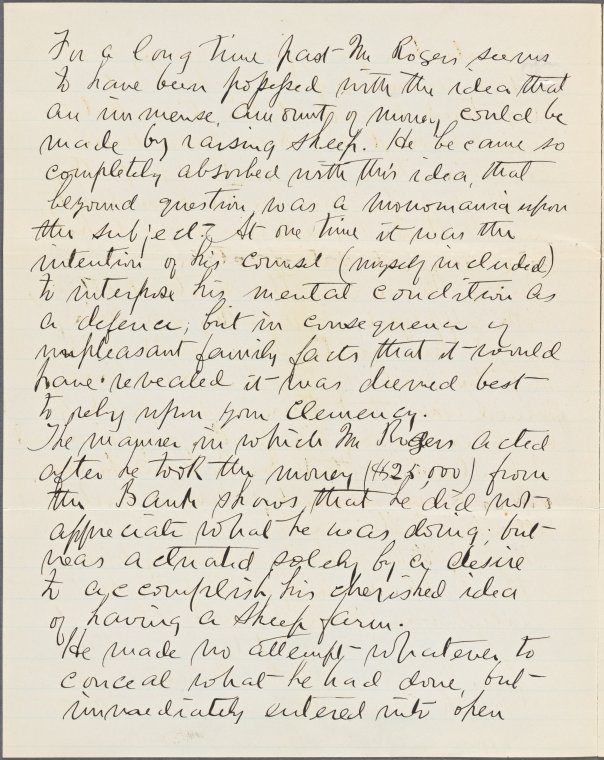 For a long time past Mr Rogers seems
to have been possessed with the idea that
an immense, amount of money could be
made by raising sheep. He became so
completely absorbed with this idea, that
beyound question, was a monomania upon
the subject. At one time it was the
intention of his counsel (myself included)
to interpose his mental condition as
a defence; but in consequence of
unpleasant family facts that it would
have revealed it was deemed best
to rely upon your clemency.
The manner in which Mr Rogers acted
after he took the money ($25,000) from
the Bank shows, that he did not
appreciate what he was doing; but
was actuated solely by a desire
to accomplish, his cherished idea
of having a sheep farm.
He made no attempt whatever to
conceal what he had done, but
immediately entered into open